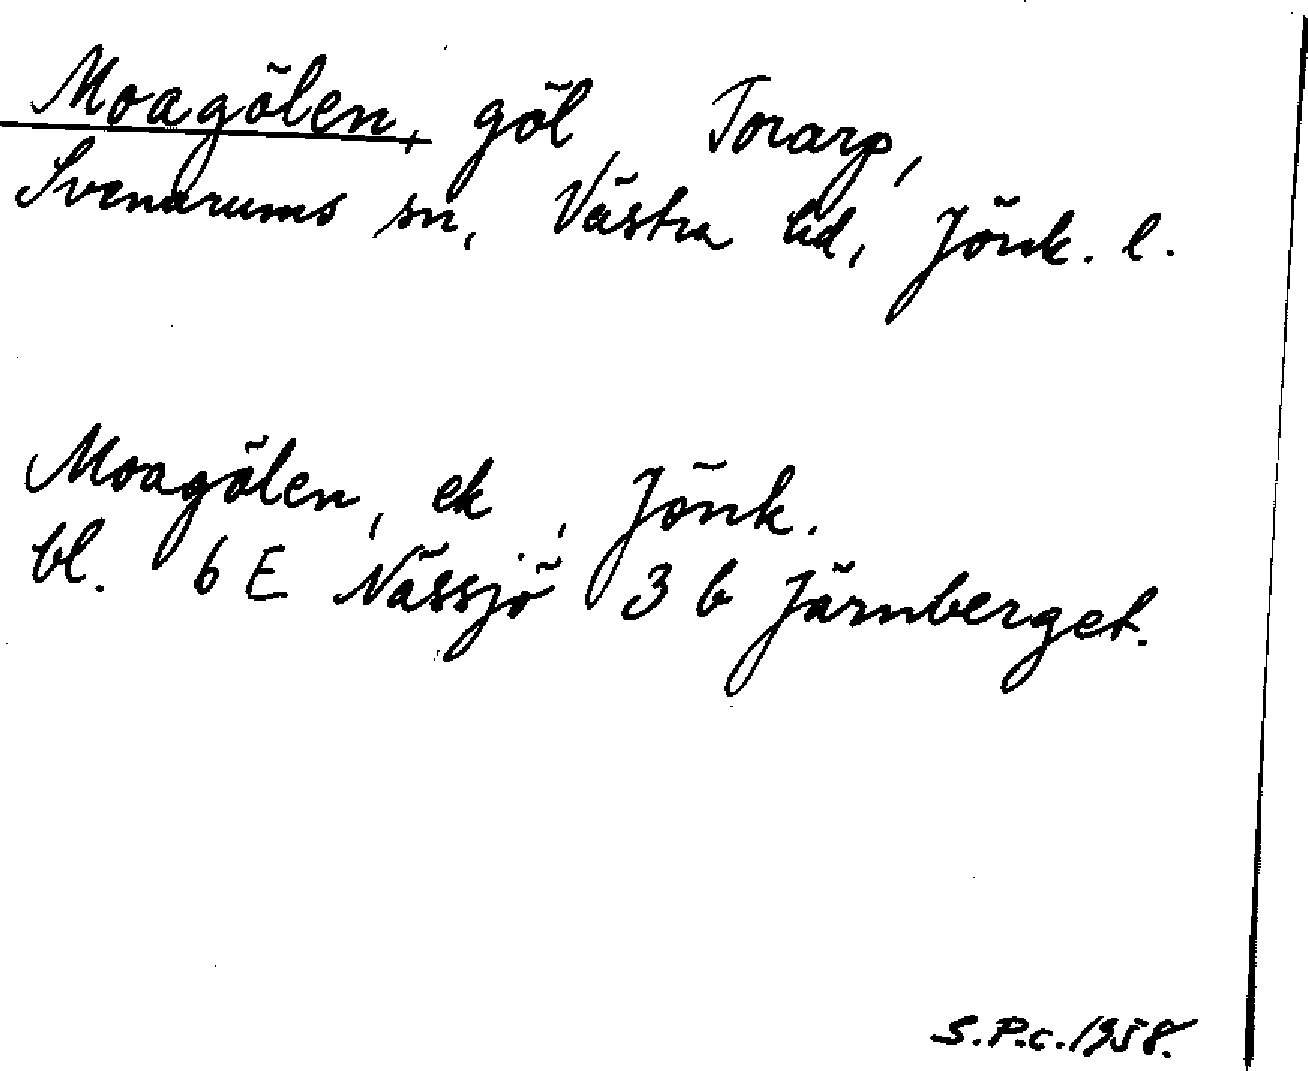 Moagölen, göl, Torarp,
Svenarums sn, Västra hd, Jönk. l.
Moagölen, ek, Jönk.
bl. 6 E Nässjö 3 b Järnberget.
S.P.c.1958.